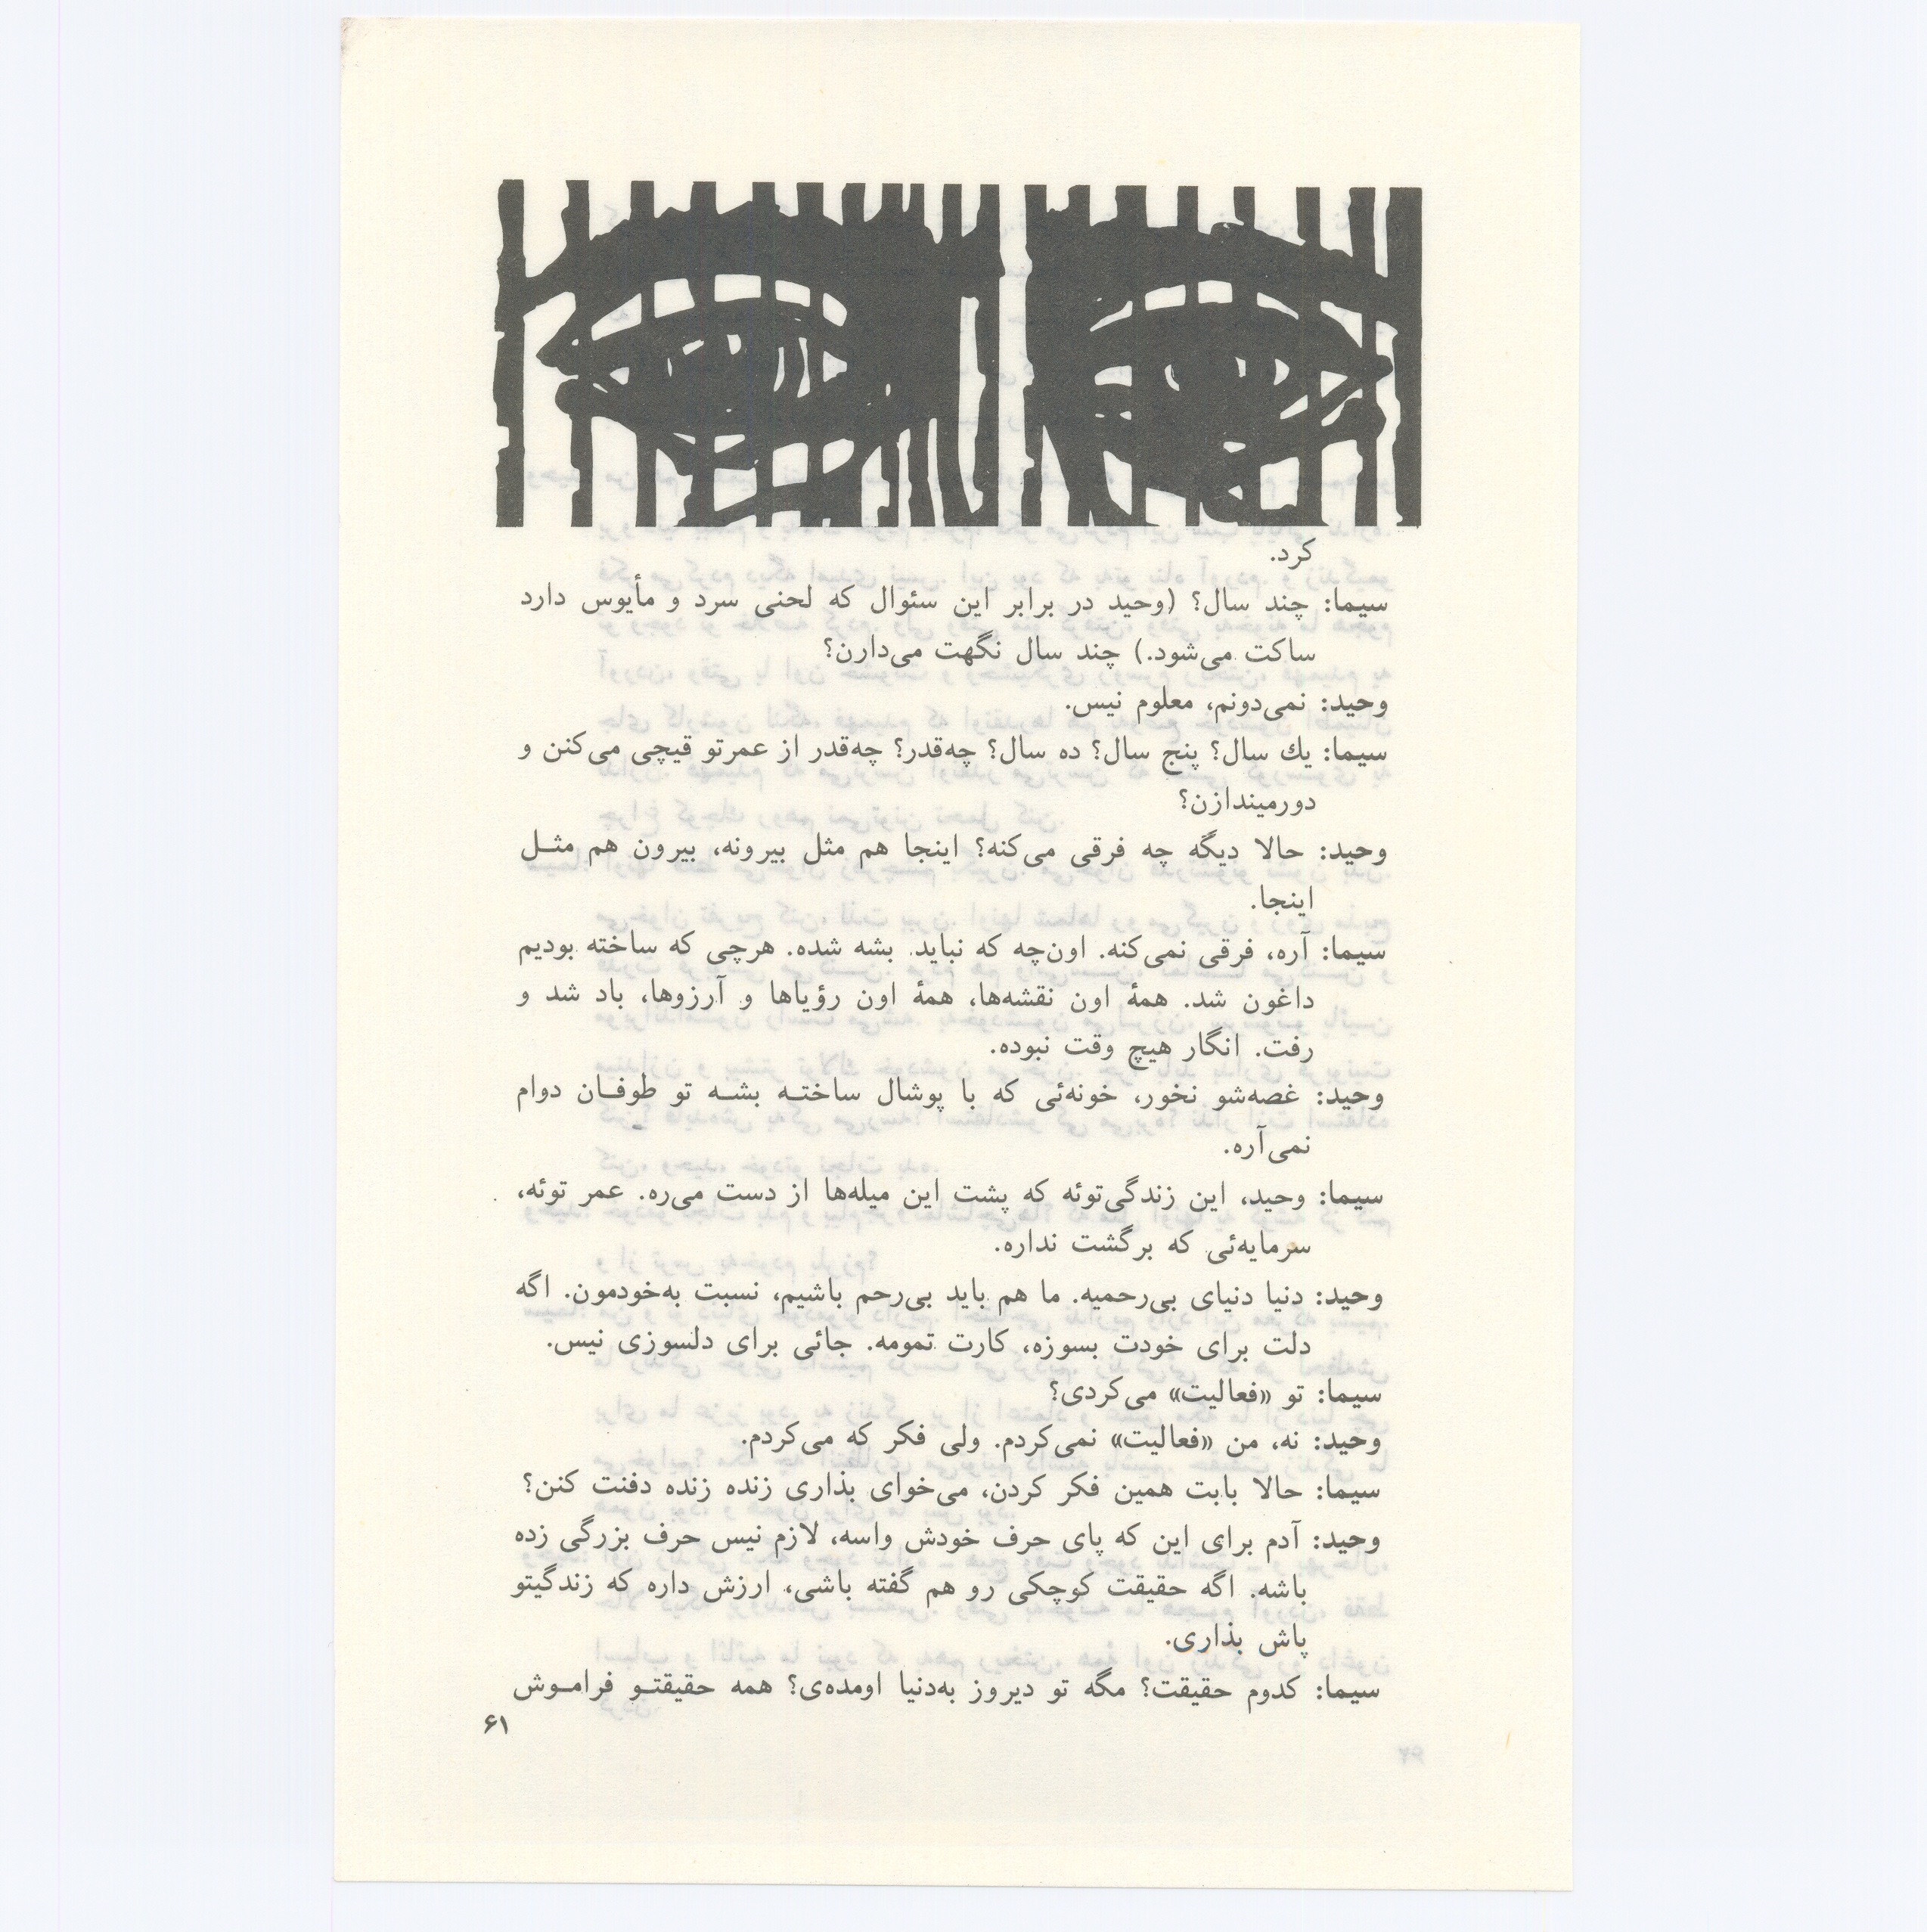 کرد.
سیما: چند سال؟ (وحید در برابر این سئوال که لحنی سرد و مأیوس دارد
ساکت می‌شود.) چند سال نگهت می‌دارن؟
وحید: نمی‌دونم، معلوم نیس.
سیما: یك سال؟ پنج سال؟ ده سال؟ چه‌قدر؟ چه‌قدر از عمرتو قیچی می‌کنن و
دورمیندازن؟
وحید: حالا دیگه چه فرقی می‌کنه؟ اینجا هم مثل بیرونه، بیرون هم مثـل
اینجا.
سیما: آره، فرقی نمی‌کنه. اون‌چه که نباید بشه شده. هرچی که ساخته بودیم
داغون شد. همهٔ اون نقشه‌ها، همهٔ اون رؤیاها و آرزوها، باد شد و
رفت. انگار هیچ وقت نبوده.
وحید: غصه‌شو نخور، خونه‌ئی که با پوشال ساختـه بشـه تو طوفـان دوام
نمی‌آره.
سیما: وحید، این زندگی‌توئه که پشت این میله‌ها از دست می‌ره. عمر توئه،
سرمایه‌ئی که برگشت نداره.
وحید: دنیا دنیای بی‌رحمیه. ما هم باید بی‌رحم باشیم، نسبت به‌خودمون. اگه
دلت برای خودت بسوزه، کارت تمومه. جائی برای دلسوزی نیس.
سیما: تو «فعالیت» می‌کردی؟
وحید: نه، من «فعالیت» نمی‌کردم. ولی فکر که می‌کردم.
سیما: حالا بابت همین فکر کردن، می‌خوای بذاری زنده زنده دفنت کنن؟
وحید: آدم برای این که پای حرف خودش واسه، لازم نیس حرف بزرگی زده
باشه. اگه حقیقت کوچکی رو هم گفته باشی، ارزش داره که زندگیتو
پاش بذاری.
سیما: کدوم حقیقت؟ مگه تو دیروز به‌دنیا اومده‌ی؟ همه حقیقتـو فرامـوش
۶۱